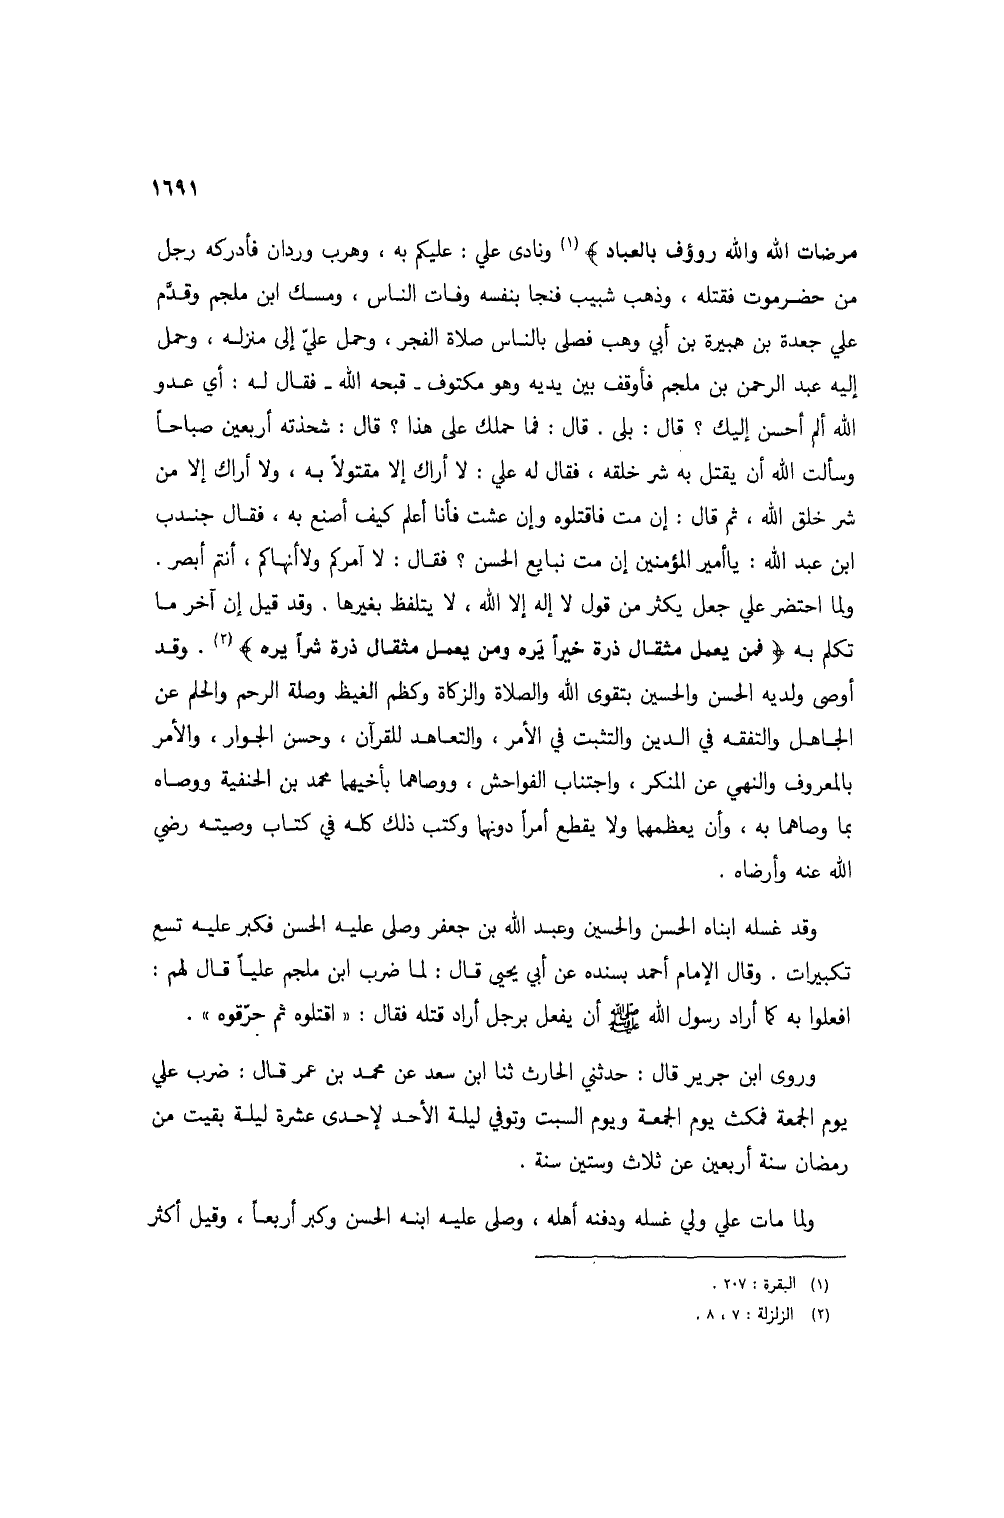 ١٦٩١
مرضات الله والله رووف بالعباد ﴾ (١) ونادى علي : عليكم به ، وهرب وردان فأدركه رجل
من حضرموت فقتله ، وذهب شبيب فنجا بنفسه وفات الناس ، ومسك ابن ملجم وقدَّم
علي جعدة بن هبيرة بن أبي وهب فصلى بالناس صلاة الفجر ، وحمل عليّ إلى منزله ، وحمل
إليه عبد الرحمن بن ملجم فأوقف بين يديه وهو مكتوف ـ قبحه الله ـ فقال له : أي عدو
الله ألم أحسن إليك ؟ قال : بلى . قال : فما حملك على هذا ؟ قال : شحذته أربعين صباحاً
وسألت الله أن يقتل به شر خلقه ، فقال له علي : لا أراك إلا مقتولاً به ، ولا أراك إلا من
شر خلق الله ، ثم قال : إن مت فاقتلوه وإن عشت فأنا أعلم كيف أصنع به ، فقال جندب
ابن عبد الله : ياأمير المؤمنين إن مت نبايع الحسن ؟ فقال : لا آمركم ولاأنهاكم ، أنتم أبصر .
ولما احتضر علي جعل يكثر من قول لا إله إلا الله ، لا يتلفظ بغيرها . وقد قيل إن آخر ما
تكلم به ﴿ فمن يعمل مثقال ذرة خيراً يَره ومن يعمل مثقال ذرة شراً يره ﴾ (٢) . وقد
أوصى ولديه الحسن والحسين بتقوى الله والصلاة والزكاة وكظم الغيظ وصلة الرحم والحلم عن
الجاهل والتفقه في الدين والتثبت في الأمر ، والتعاهد للقرآن ، وحسن الجوار ، والأمر
بالمعروف والنهي عن المنكر ، واجتناب الفواحش ، ووصاهما بأخيهما محمد بن الحنفية ووصاه
بما وصاهما به ، وأن يعظمهما ولا يقطع أمراً دونهما وكتب ذلك كله في كتاب وصيته رضي
الله عنه وأرضاه .
وقد غسله ابناه الحسن والحسين وعبد الله بن جعفر وصلى عليه الحسن فكبر عليه تسع
تكبيرات . وقال الإمام أحمد بسنده عن أبي يحيى قال : لما ضرب ابن ملجم علياً قال لهم :
افعلوا به كما أراد رسول الله ﷺ أن يفعل برجل أراد قتله فقال : « اقتلوه ثم حرّقوه » .
وروى ابن جرير قال : حدثني الحارث ثنا ابن سعد عن محمد بن عمر قال : ضرب علي
يوم الجمعة فمكث يوم الجمعة ويوم السبت وتوفي ليلة الأحد لإحدى عشرة ليلة بقيت من
رمضان سنة أربعين عن ثلاث وستين سنة .
ولما مات علي ولي غسله ودفنه أهله ، وصلى عليه ابنه الحسن وكبر أربعاً ، وقيل أكثر
(١) البقرة : ٢٠٧ .
(٢) الزلزلة : ٧ ، ٨ .